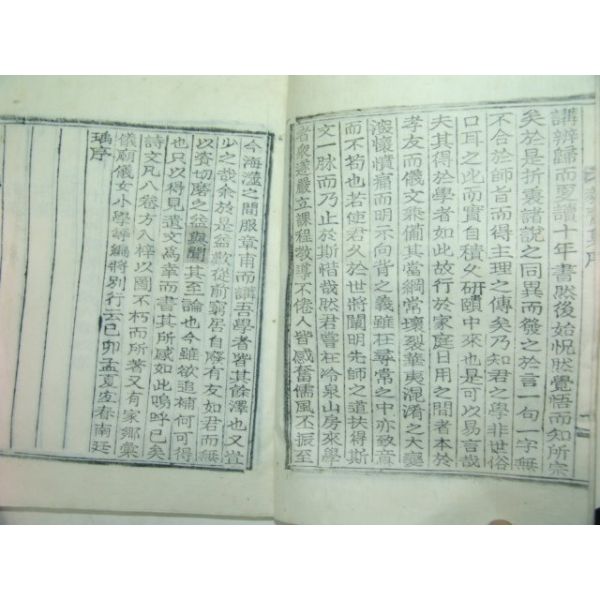 講辨歸而覃讀十年書然後始怳然覺悟而知所宗
矣於是折衷諸說之同異而發之於言一句一字無
不合於師旨而得主理之傳矣乃知君之學非世俗
口耳之比而實自積久研賾中來也是可以易言哉
夫其得於學者如此故行於家庭日用之間者本於
孝友而儀文兼備其當綱常壞裂華夷混淆之大變
深懷憤痛而明示向背之義雖在尋常之中亦致意
而不苟也若使君久於世將闡明先師之道扶得斯
文一脉而乃止於斯惜哉然君嘗在冷泉山房來學
者衆遂嚴立課程敎導不倦人皆感奮儒風丕振至
今海瀣之間服章甫而講吾學者皆其餘澤也又豈
少之哉余於是益歎從所窮居自廢有友如君而無
以資切磨之益與聞其至論也今雖欲追補何可得
也只以得見遺文爲幸而書其所感如此嗚呼已矣
詩文凡八卷方入梓以圖不朽而所著又有家鄕彙
儀廟儀女小學等編將別行云己卯孟夏友春南廷
瑀序